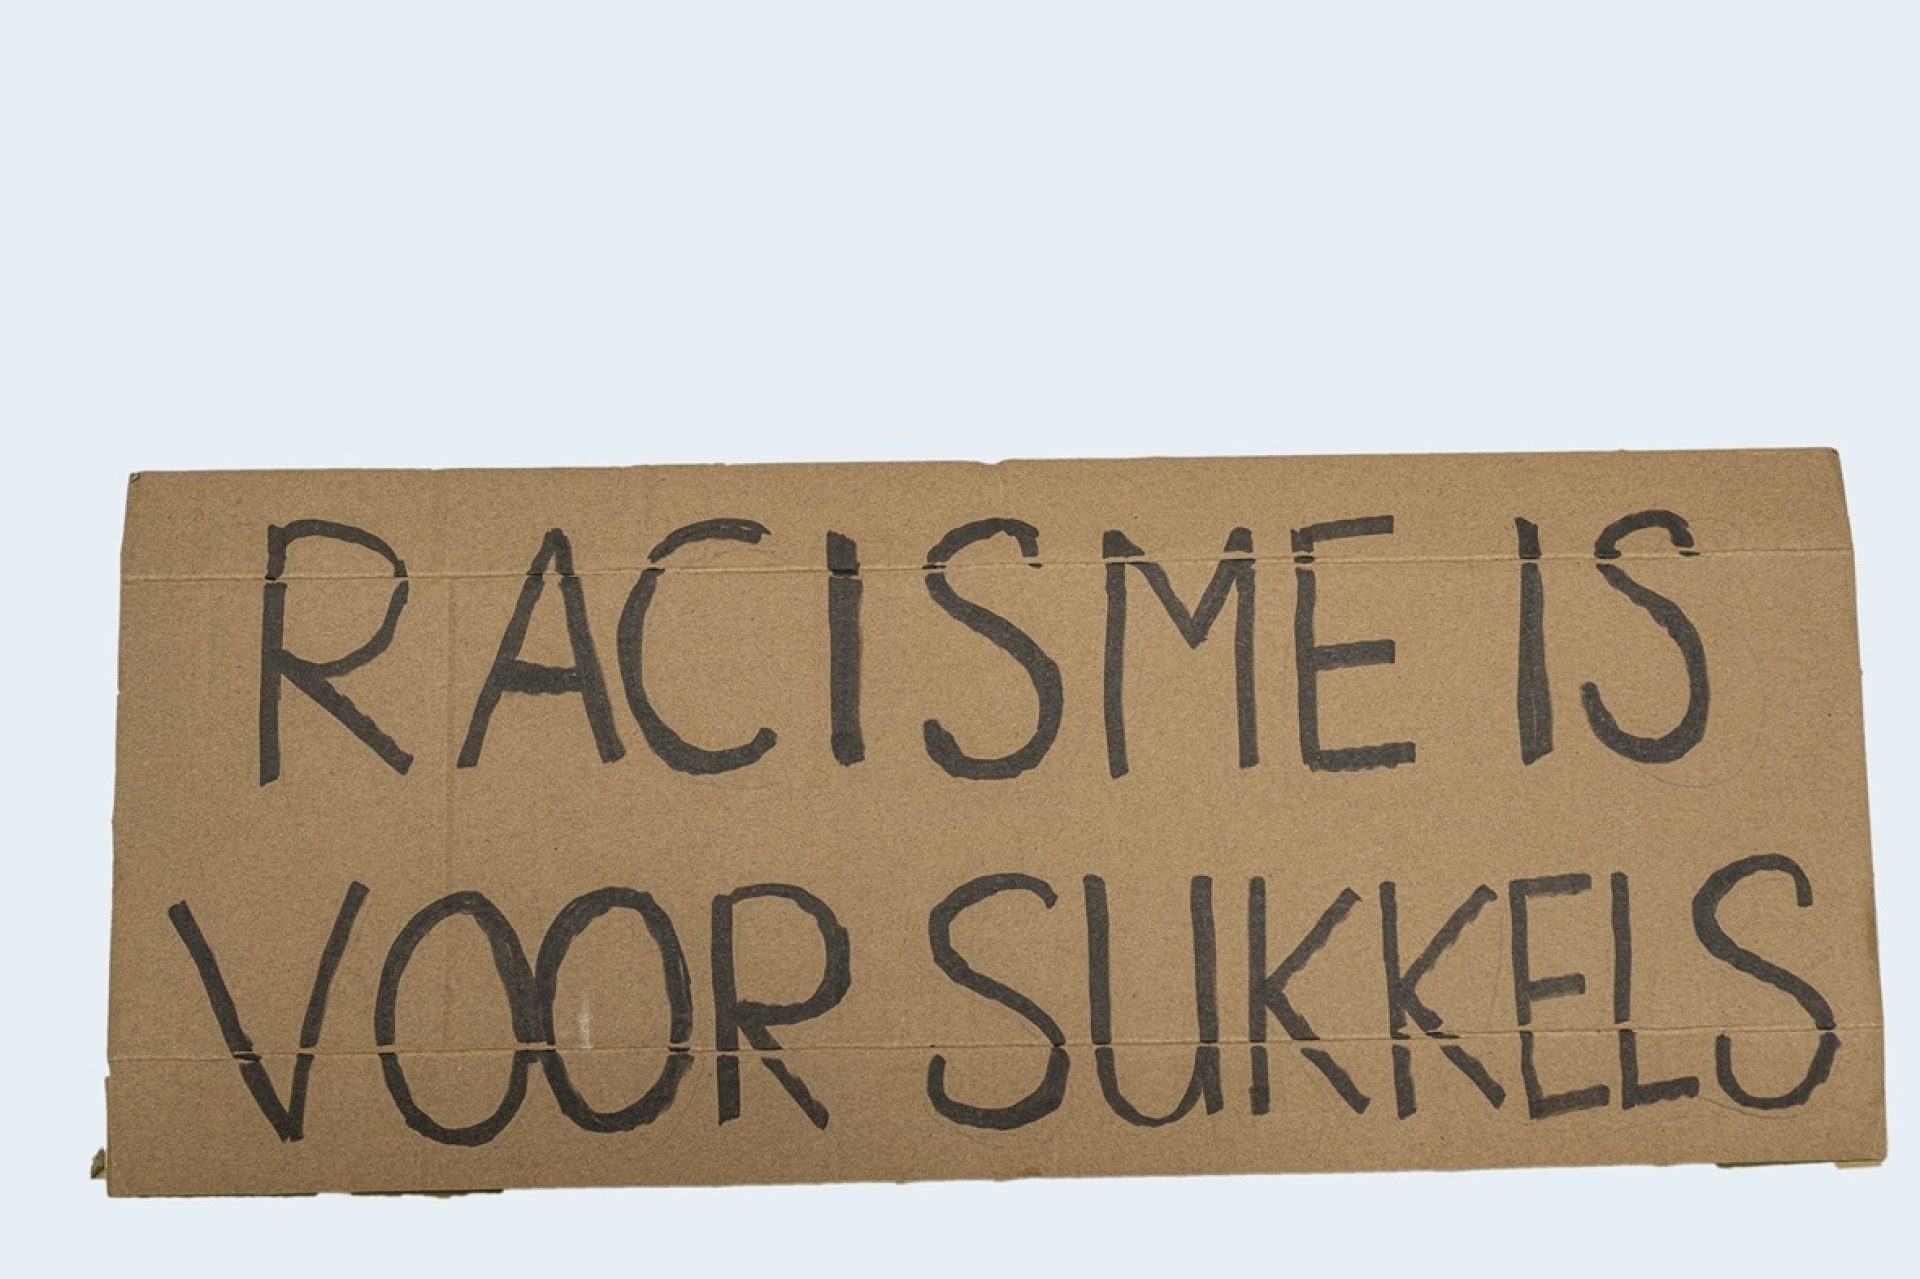 RACISME IS
VOOR SUKKELS